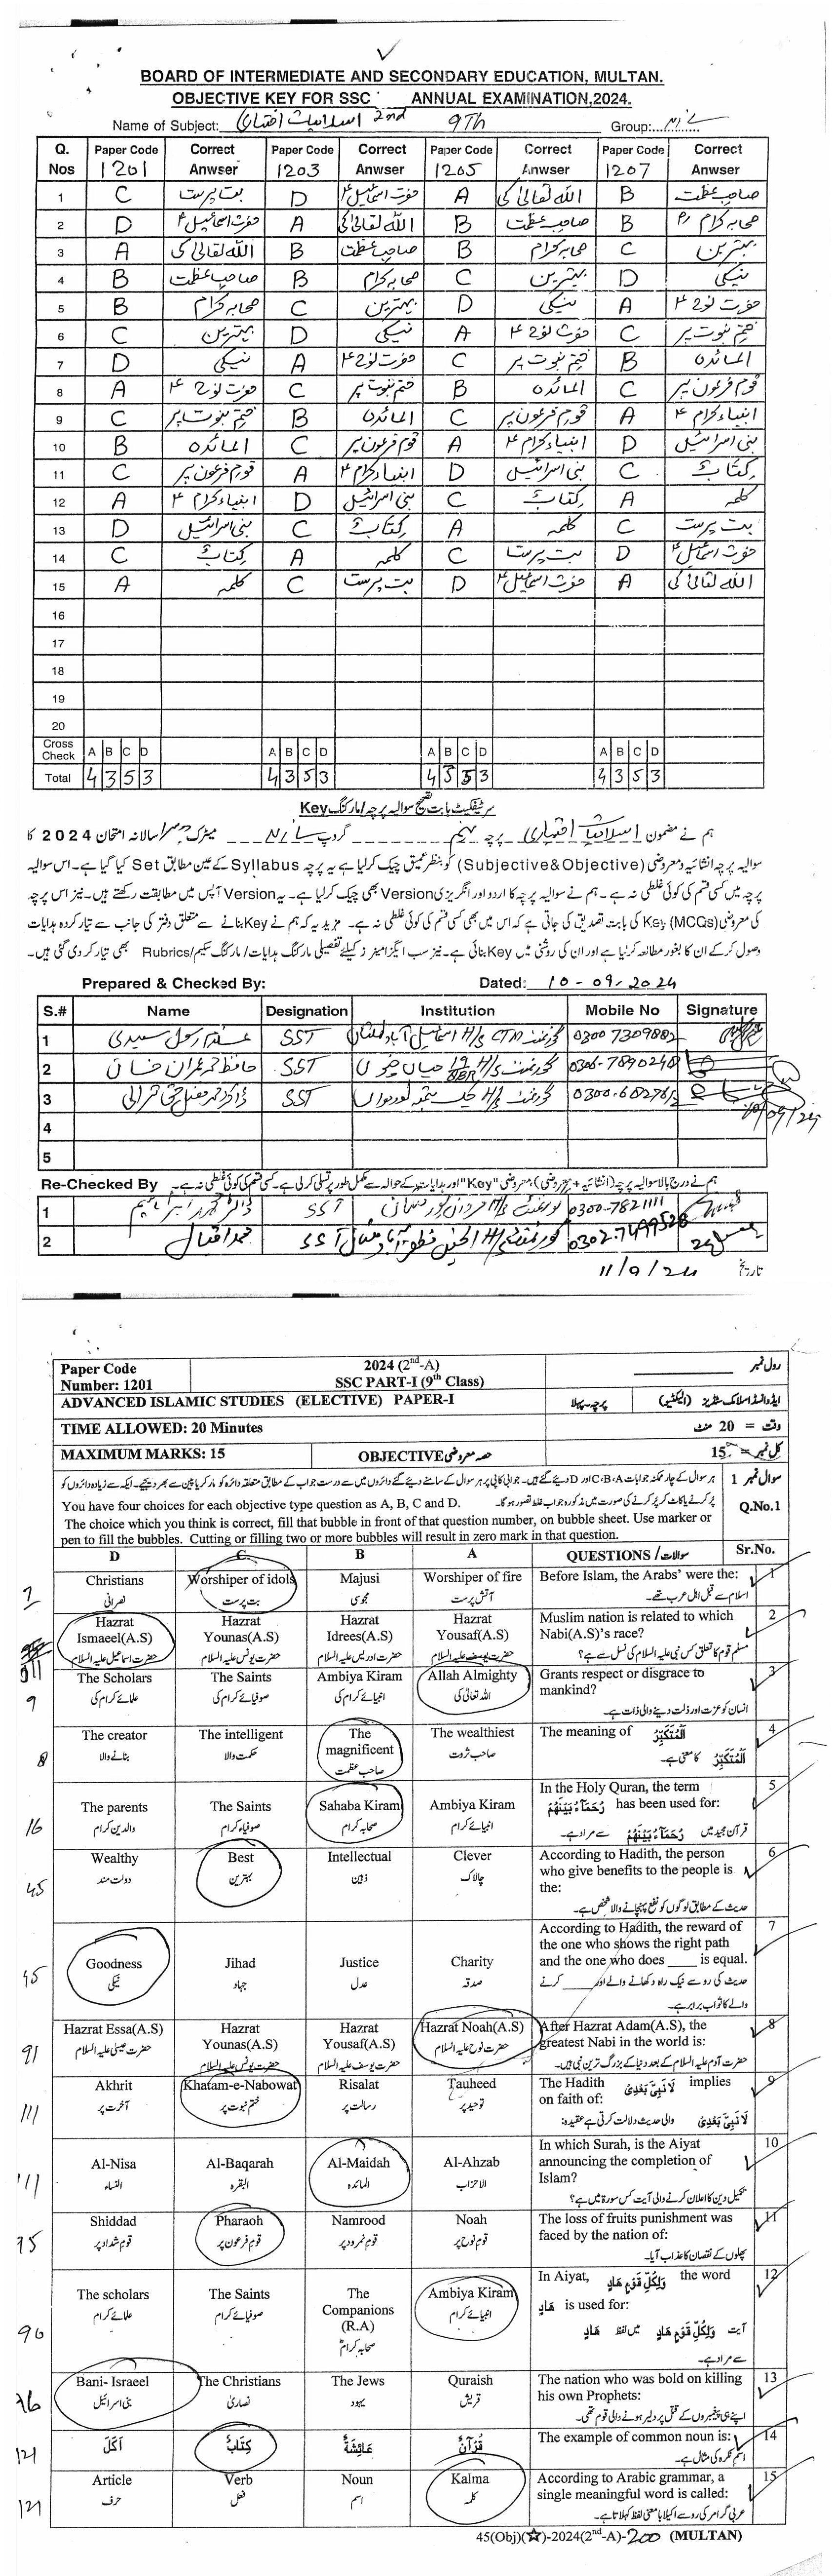 BOARD OF INTERMEDIATE AND SECONDARY EDUCATION, MULTAN.
OBJECTIVE KEY FOR SSC ANNUAL EXAMINATION,2024.
Name of Subject: اسلامیات اختیاری 2nd 9Th Group:
Q. Nos Paper Code 1201 Correct Anwser Paper Code 1203 Correct Anwser Paper Code 1205 Correct Anwser Paper Code 1207 Correct Anwser
1 C بت پرست D حضرت اسماعیلؑ A اللہ تعالیٰ کی B صاحب عظمت
2 D حضرت اسماعیلؑ A اللہ تعالیٰ کی B صاحب عظمت B صحابہ کرام
3 A اللہ تعالیٰ کی B صاحب عظمت B صحابہ کرام C بہترین
4 B صاحب عظمت B صحابہ کرام C بہترین D نیکی
5 B صحابہ کرام C بہترین D نیکی A حضرت نوحؑ
6 C بہترین D نیکی A حضرت نوحؑ C ختم نبوت پر
7 D نیکی A حضرت نوحؑ C ختم نبوت پر B المائدہ
8 A حضرت نوحؑ C ختم نبوت پر B المائدہ C قوم فرعون پر
9 C ختم نبوت پر B المائدہ C قوم فرعون پر A انبیاء کرامؑ
10 B المائدہ C قوم فرعون پر A انبیاء کرامؑ D بنی اسرائیل
11 C قوم فرعون پر A انبیاء کرامؑ D بنی اسرائیل C کتابٌ
12 A انبیاء کرامؑ D بنی اسرائیل C کتابٌ A کلمہ
13 D بنی اسرائیل C کتابٌ A کلمہ C بت پرست
14 C کتابٌ A کلمہ C بت پرست D حضرت اسماعیلؑ
15 A کلمہ C بت پرست D حضرت اسماعیلؑ A اللہ تعالیٰ کی
16
17
18
19
20
Cross Check A B C D A B C D A B C D A B C D
Total 4 3 5 3 4 3 5 3 4 3 5 3 4 3 5 3
سرٹیفکیٹ بابت تصحیح سوالیہ پرچہ/مارکنگ Key
ہم نے مضمون اسلامیات اختیاری پرچہ نہم گروپ میٹرک سالانہ امتحان 2024 کا
سوالیہ پرچہ انشائیہ و معروضی (Subjective&Objective) کو بنظر عمیق چیک کر لیا ہے یہ پرچہ Syllabus کے عین مطابق Set کیا گیا ہے۔ اس سوالیہ
پرچہ میں کسی قسم کی کوئی غلطی نہ ہے۔ ہم نے سوالیہ پرچہ کا اردو اور انگریزی Version بھی چیک کر لیا ہے۔ یہ Version آپس میں مطابقت رکھتے ہیں۔ نیز اس پرچہ
کی معروضی (MCQs) Key کی بابت تصدیق کی جاتی ہے کہ اس میں بھی کسی قسم کی کوئی غلطی نہ ہے۔ مزید یہ کہ ہم نے Key بنانے سے متعلق دفتر کی جانب سے تیار کردہ ہدایات
وصول کر کے ان کا بغور مطالعہ کر لیا ہے اور ان کی روشنی میں Key بنائی ہے۔ نیز سب ایگزامینرز کیلئے تفصیلی مارکنگ ہدایات/مارکنگ سکیم/Rubrics بھی تیار کر دی گئی ہیں۔
Prepared & Checked By: Dated: 10-09-2024
S.# Name Designation Institution Mobile No Signature
1 غلام رسول سعیدی SST 0300 7309882
2 حافظ محمد عمران خان SST 0306-7890248
3 SST 10/09/24
4
5
Re-Checked By ہم نے درج بالا سوالیہ پرچہ (انشائیہ + معروضی)، معروضی "Key" اور ہدایات
1 SST 0300-7821111
2 محمد اقبال SST 0302-7499528
11/9/24 تاریخ
Paper Code Number: 1201 2024 (2nd-A) SSC PART-I (9th Class) رول نمبر
ADVANCED ISLAMIC STUDIES (ELECTIVE) PAPER-I پرچہ پہلا ایڈوانسڈ اسلامک سٹڈیز (الیکٹو)
TIME ALLOWED: 20 Minutes وقت = 20 منٹ
MAXIMUM MARKS: 15 OBJECTIVE حصہ معروضی کل نمبر = 15
سوال نمبر 1 ہر سوال کے چار ممکنہ جوابات C،B،A اور D دیئے گئے ہیں۔ جوابی کاپی پر ہر سوال کے سامنے دیئے گئے دائروں میں سے درست جواب کے مطابق متعلقہ دائرہ کو مارکر یا پین سے بھر دیجیے۔ ایک سے زیادہ دائروں کو
پُر کرنے یا کاٹ کر پُر کرنے کی صورت میں مذکورہ جواب غلط تصور ہو گا۔
Q.No.1 You have four choices for each objective type question as A, B, C and D.
The choice which you think is correct, fill that bubble in front of that question number, on bubble sheet. Use marker or
pen to fill the bubbles. Cutting or filling two or more bubbles will result in zero mark in that question.
D C B A QUESTIONS / سوالات Sr.No.
Christians Worshiper of idols Majusi Worshiper of fire Before Islam, the Arabs' were the: 1
نصرانی بت پرست مجوسی آتش پرست اسلام سے قبل اہل عرب تھے۔
Hazrat Ismaeel(A.S) Hazrat Younas(A.S) Hazrat Idrees(A.S) Hazrat Yousaf(A.S) Muslim nation is related to which Nabi(A.S)'s race? 2
حضرت اسماعیل علیہ السلام حضرت یونس علیہ السلام حضرت ادریس علیہ السلام حضرت یوسف علیہ السلام مسلم قوم کا تعلق کس نبی علیہ السلام کی نسل سے ہے؟
The Scholars The Saints Ambiya Kiram Allah Almighty Grants respect or disgrace to mankind? 3
9 علمائے کرام کی صوفیائے کرام کی انبیائے کرام کی اللہ تعالیٰ کی انسان کو عزت اور ذلت دینے والی ذات ہے۔
The creator The intelligent The magnificent The wealthiest The meaning of اَلْمُتَكَبِّرُ 4
8 بنانے والا حکمت والا صاحب عظمت صاحب ثروت اَلْمُتَكَبِّرُ کا معنی ہے۔
The parents The Saints Sahaba Kiram Ambiya Kiram In the Holy Quran, the term رُحَمَآءُ بَيْنَهُمْ has been used for: 5
16 والدین کرام صوفیاء کرام صحابہ کرام انبیائے کرام قرآن مجید میں رُحَمَآءُ بَيْنَهُمْ سے مراد ہے۔
Wealthy Best Intellectual Clever According to Hadith, the person who give benefits to the people is the: 6
45 دولت مند بہترین ذہین چالاک حدیث کے مطابق لوگوں کو نفع پہنچانے والا شخص ہے۔
Goodness Jihad Justice Charity According to Hadith, the reward of the one who shows the right path and the one who does ____ is equal. 7
45 نیکی جہاد عدل صدقہ حدیث کی رو سے نیک راہ دکھانے والے اور ____ کرنے والے کا ثواب برابر ہے۔
Hazrat Essa(A.S) Hazrat Younas(A.S) Hazrat Yousaf(A.S) Hazrat Noah(A.S) After Hazrat Adam(A.S), the greatest Nabi in the world is: 8
91 حضرت عیسیٰ علیہ السلام حضرت یونس علیہ السلام حضرت یوسف علیہ السلام حضرت نوح علیہ السلام حضرت آدم علیہ السلام کے بعد دنیا کے بزرگ ترین نبی ہیں۔
Akhrit Khatam-e-Nabowat Risalat Tauheed The Hadith لَا نَبِيَّ بَعْدِيْ implies on faith of: 9
111 آخرت پر ختم نبوت پر رسالت پر توحید پر لَا نَبِيَّ بَعْدِيْ والی حدیث دلالت کرتی ہے عقیدہ:
Al-Nisa Al-Baqarah Al-Maidah Al-Ahzab In which Surah, is the Aiyat announcing the completion of Islam? 10
111 النساء البقرہ المائدہ الاحزاب تکمیل دین کا اعلان کرنے والی آیت کس سورۃ میں ہے؟
Shiddad Pharaoh Namrood Noah The loss of fruits punishment was faced by the nation of: 11
75 قوم شداد پر قوم فرعون پر قوم نمرود پر قوم نوح پر پھلوں کے نقصان کا عذاب آیا۔
The scholars The Saints The Companions (R.A) Ambiya Kiram In Aiyat, وَلِكُلِّ قَوْمٍ هَادٍ the word هَادٍ is used for: 12
96 علمائے کرام صوفیائے کرام صحابہ کرام انبیائے کرام آیت وَلِكُلِّ قَوْمٍ هَادٍ میں لفظ هَادٍ سے مراد ہے۔
Bani- Israeel The Christians The Jews Quraish The nation who was bold on killing his own Prophets: 13
76 بنی اسرائیل نصاریٰ یہود قریش اپنے ہی پیغمبروں کے قتل پر دلیر ہونے والی قوم تھی۔
اَكَلَ كِتَابٌ عَائِشَةُ قُرْآنٌ The example of common noun is: 14
121 اسم نکرہ کی مثال ہے۔
Article Verb Noun Kalma According to Arabic grammar, a single meaningful word is called: 15
121 حرف فعل اسم کلمہ عربی گرامر کی رو سے اکیلا با معنی لفظ کہلاتا ہے۔
45(Obj)(☆)-2024(2nd-A)-200 (MULTAN)